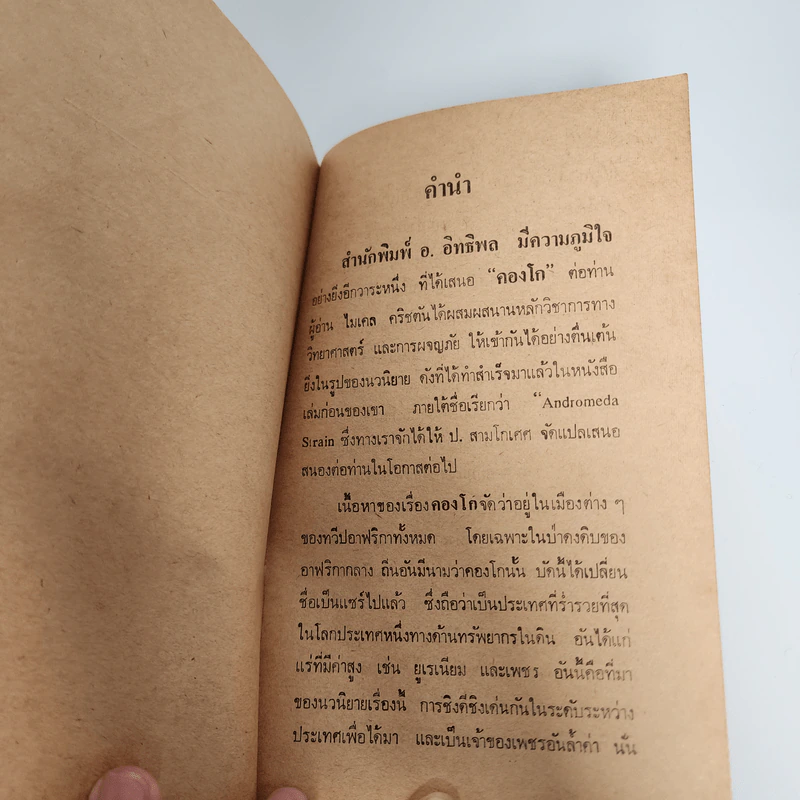 คำนำ
สำนักพิมพ์ อ. อิทธิพล มีความภูมิใจ
อย่างยิ่งอีกวาระหนึ่ง ที่ได้เสนอ “คองโก” ต่อท่าน
ผู้อ่าน ไมเคล คริชตันได้ผสมผสนานหลักวิชาการทาง
วิทยาศาสตร์ และการผจญภัย ให้เข้ากันได้อย่างตื่นเต้น
ยิ่งในรูปของนวนิยาย ดังที่ได้ทำสำเร็จมาแล้วในหนังสือ
เล่มก่อนของเขา ภายใต้ชื่อเรียกว่า “Andromeda
Strain ซึ่งทางเราจักได้ให้ ป. สามโกเศศ จัดแปลเสนอ
สนองต่อท่านในโอกาสต่อไป
เนื้อหาของเรื่องคองโกจัดว่าอยู่ในเมืองต่าง ๆ
ของทวีปอาฟริกาทั้งหมด โดยเฉพาะในป่าดงดิบของ
อาฟริกากลาง ถิ่นอันมีนามว่าคองโกนั้น บัดนี้ได้เปลี่ยน
ชื่อเป็นแซร์ไปแล้ว ซึ่งถือว่าเป็นประเทศที่ร่ำรวยที่สุด
ในโลกประเทศหนึ่งทางด้านทรัพยากรในดิน อันได้แก่
แร่ที่มีค่าสูง เช่น ยูเรเนียม และเพชร อันนี้คือที่มา
ของนวนิยายเรื่องนี้ การชิงดีชิงเด่นกันในระดับระหว่าง
ประเทศเพื่อได้มา และเป็นเจ้าของเพชรอันล้ำค่า นั้น